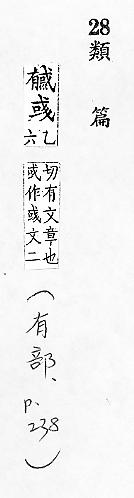 28
類篇
彧乙六
切有文章也
或作彧文二
(有部、p.238)